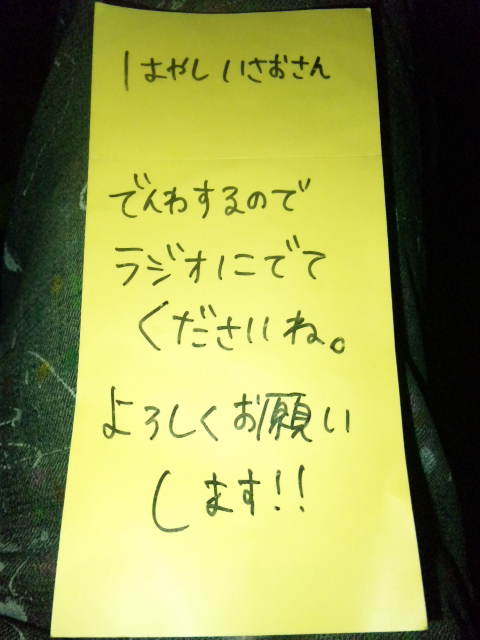 はやし いさおさん
でんわするので
ラジオにでて
くださいね。
よろしくお願い
します!!